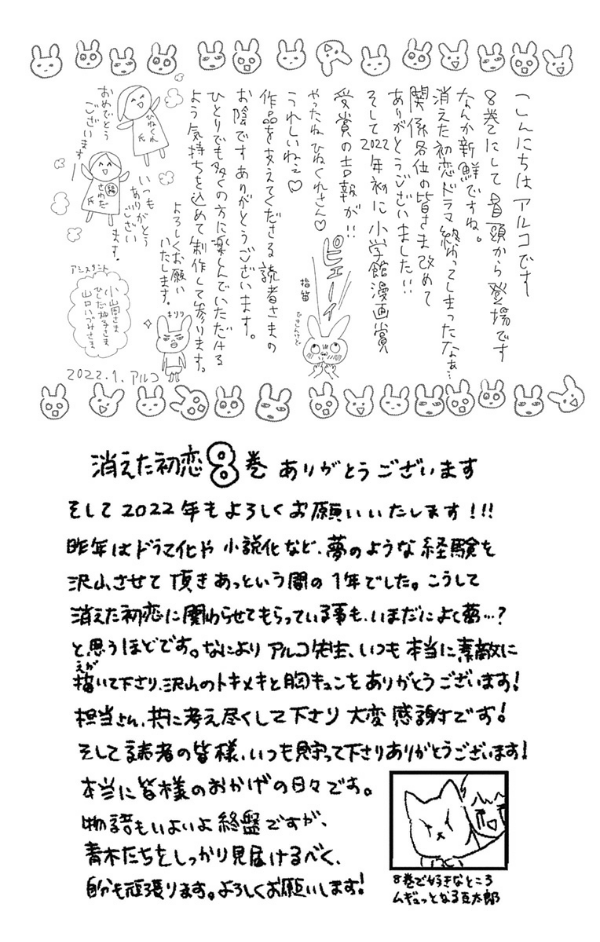 こんにちはアルコです
8巻にして冒頭から登場です
なんか新鮮ですね。
消えた初恋ドラマ終わってしまったなぁ…
関係各位の皆さま改めて
ありがとうございました!!
そして2022年初に小学館漫画賞
受賞の吉報が!!
やったねひねくれさん♡
うれしいねぇ♡
ピューイ
指笛
作品を支えてくださる読者さまの
お陰ですありがとうございます。
ひとりでも多くの方に楽しんでいただける
よう気持ちを込めて制作して参ります。
よろしくお願い
いたします。
キリッ
ひねくれ
氏
おめでとう
ございますー
氏
いつも
ありがとう
ござい
ます。
アシスタント
小山田さま
山口ハヅみさま
2022.1.アルコ
消えた初恋8巻ありがとうございます
そして2022年もよろしくお願いいたします!!!
昨年はドラマ化や小説化など、夢のような経験を
沢山させて頂きあっという間の1年でした。こうして
消えた初恋に関わらせてもらっている事も、いまだによく夢…?
と思うほどです。なによりアルコ先生、いつも本当に素敵に
描いて下さり、沢山のトキメキと胸キュンをありがとうございます!
えが
担当さん、共に考え尽くして下さり大変感謝です!
そして読者の皆様、いつも見守って下さりありがとうございます!
本当に皆様のおかげの日々です。
物語もいよいよ終盤ですが、
青木たちをしっかり見届けるべく、
自分も頑張ります。よろしくお願いします!
8巻で好きなところ
ムギュッとなる豆太郎